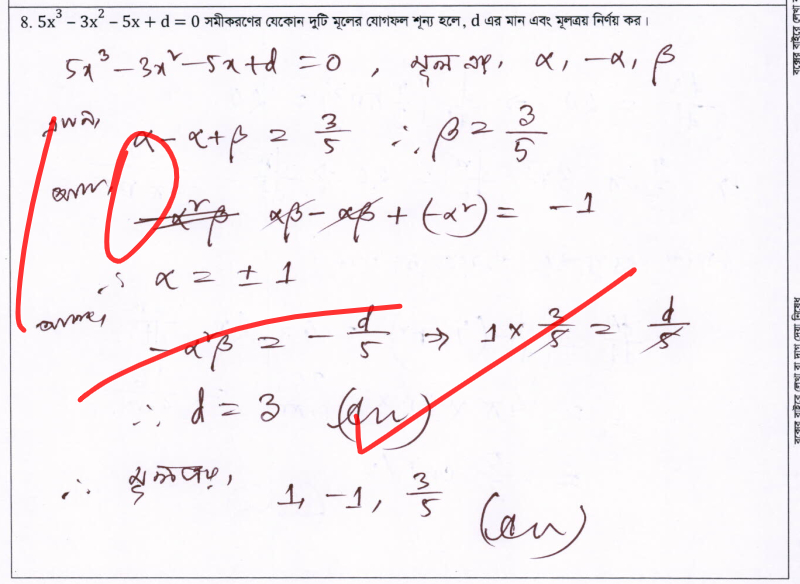 8. 5x³ – 3x² – 5x + d = 0 সমীকরণের যেকোন দুটি মূলের যোগফল শূন্য হলে, d এর মান এবং মূলত্রয় নির্ণয় কর।
5x³ – 3x² – 5x + d = 0 , মূলত্রয়, α, –α, β
এখন,
α – α + β = 3/5 ∴ β = 3/5
আবার,
–α²β αβ – αβ + (–α²) = –1
∴ α = ± 1
আবার,
–α²β = – d/5 ⇒ 1 × 3/5 = d/5
∴ d = 3 (An)
∴ মূলত্রয়, 1, –1, 3/5 (An)